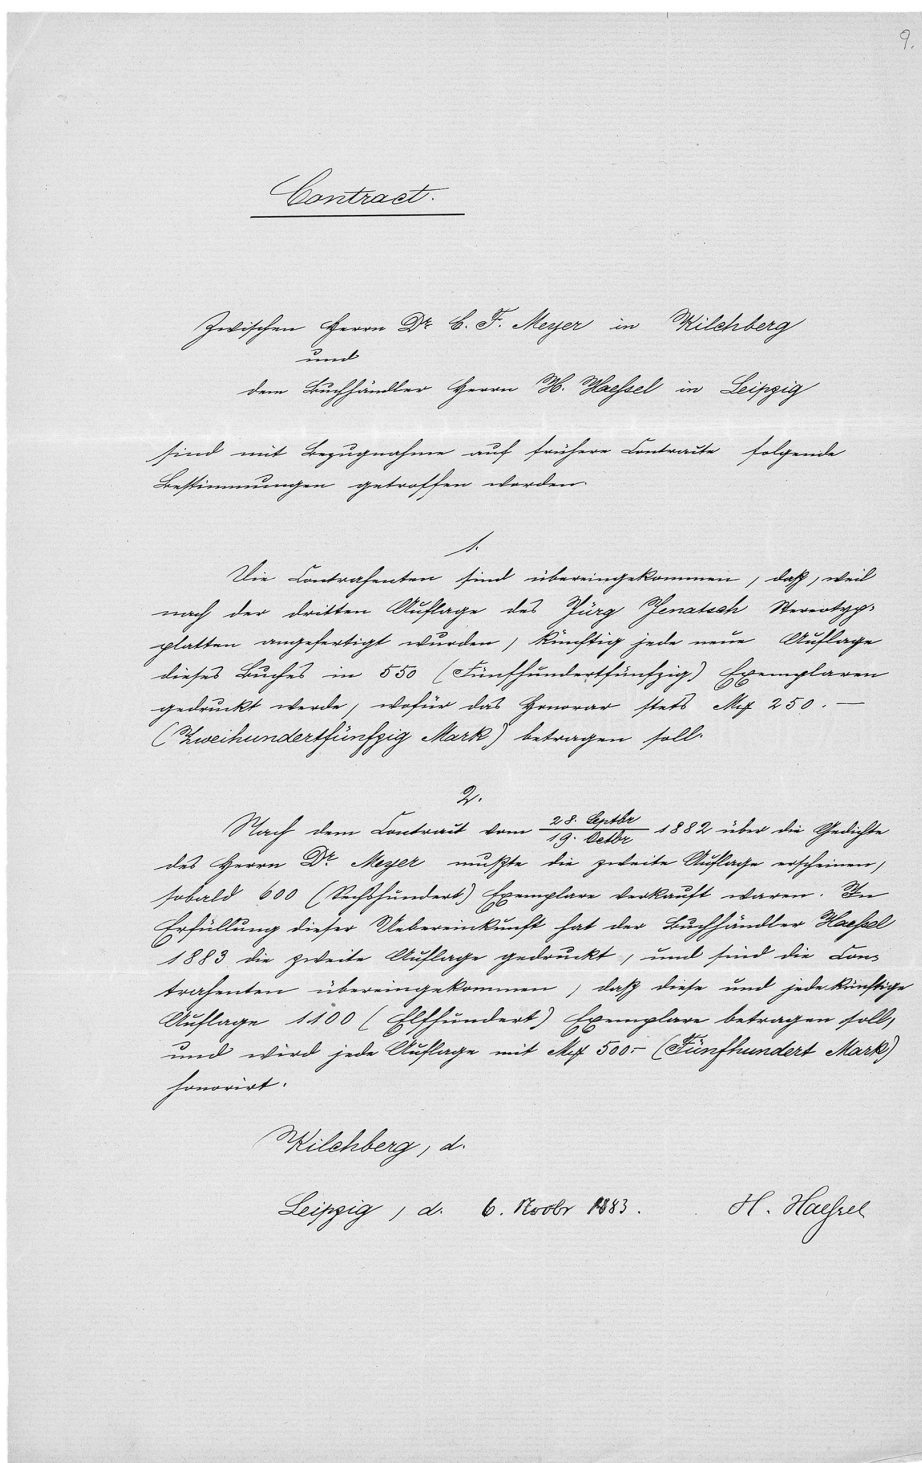 9.
Contract.
Zwischen Herrn Dr C. F. Meyer in Kilchberg
und
dem Buchhändler Herrn H. Haessel in Leipzig
sind mit Bezugnahme auf frühere Contracte folgende
Bestimmungen getroffen worden.
1.
Die Contrahenten sind übereingekommen, daß, weil
nach der dritten Auflage des Jürg Jenatsch Stereotyp-
platten angefertigt wurden, künftig jede neue Auflage
dieses Buches in 550 (Fünfhundertfünfzig) Exemplaren
gedruckt werde, wofür das Honorar stets Mk 250.—
(Zweihundertfünfzig Mark) betragen soll.
2.
Nach dem Contract vom 28. Septbr / 19. Octbr 1882 über die Gedichte
des Herrn Dr Meyer mußte die zweite Auflage erscheinen,
sobald 600 (Sechshundert) Exemplare verkauft waren. In
Erfüllung dieser Uebereinkunft hat der Buchhändler Haessel
1883 die zweite Auflage gedruckt, und sind die Con-
trahenten übereingekommen, daß diese und jede künftige
Auflage 1100 (Elfhundert) Exemplare betragen soll,
und wird jede Auflage mit Mk 500.– (Fünfhundert Mark)
honorirt.
Kilchberg, d.
Leipzig, d. 6. Novbr 1883. H. Haessel